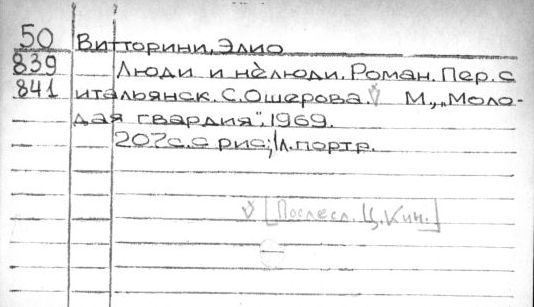 50
839
841
Витторини, Элио
Люди и нèлюди. Роман. Пер. с
итальянск. С. Ошерова. √ М., „Моло-
дая гвардия", 1969.
207с. с рис; 1л. портр.
√ [Послесл. Ц. Кин.]